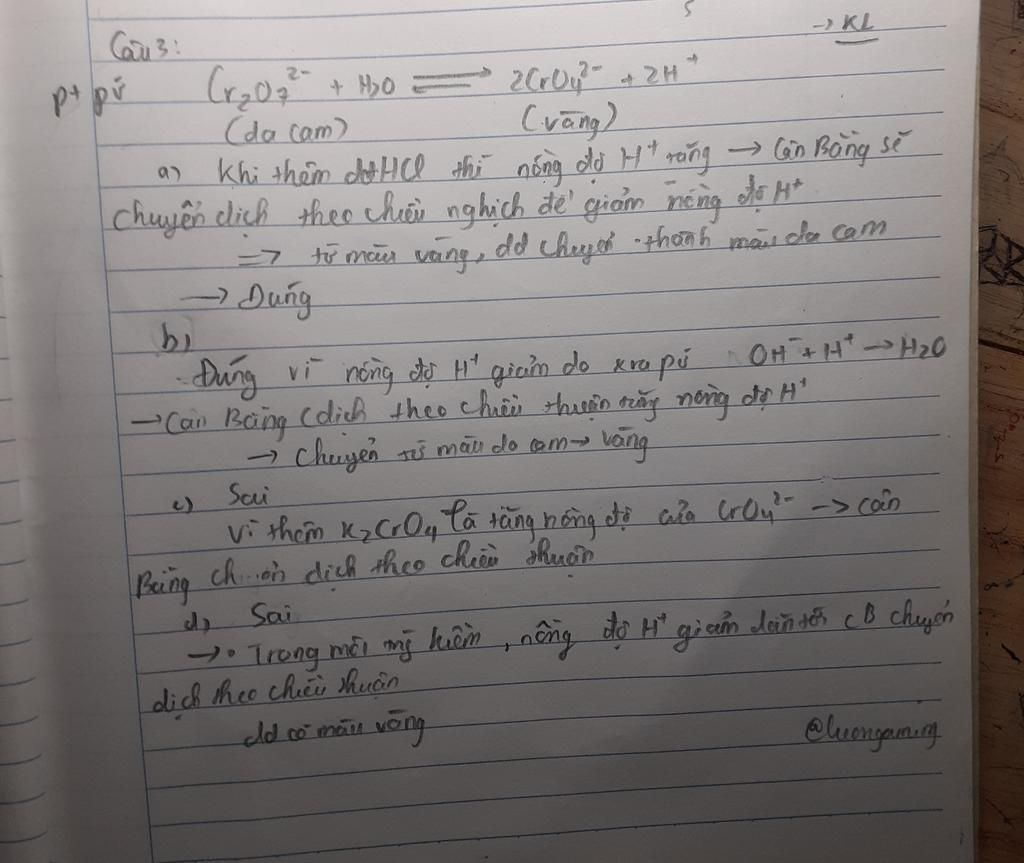 → KL
Câu 3:
pt pứ Cr₂O₇²⁻ + H₂O ⇌ 2CrO₄²⁻ + 2H⁺
(da cam) (vàng)
a) Khi thêm HCl thì nồng độ H⁺ tăng → Cân Bằng sẽ
chuyển dịch theo chiều nghịch để giảm nồng độ H⁺
=> từ màu vàng, dd chuyển thành màu da cam
→ Đúng
b)
Đúng vì nồng độ H⁺ giảm do xra pứ OH⁻ + H⁺ → H₂O
→ Cân Bằng Cdịch theo chiều thuận tăng nồng độ H⁺
→ chuyển từ màu da cam → vàng
c) Sai
Vì thêm K₂CrO₄ là tăng nồng độ của CrO₄²⁻ → cân
Bằng dịch theo chiều thuận
d) Sai
→ Trong môi kiềm, nồng độ H⁺ giảm dẫn tới CB chuyển
dịch theo chiều thuận
dd có màu vàng
@luongaming